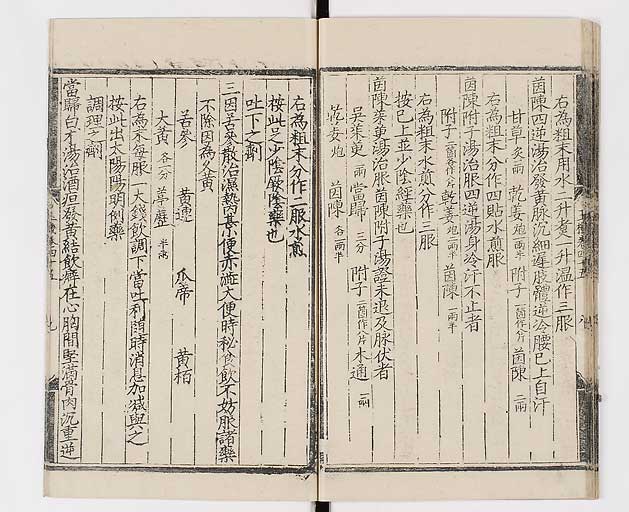 右為粗末用水一升煑一升温作三服
茵陳四逆湯治發黃脉沉細遲肢體逆冷腰已上自汗
甘草炙兩 乾姜炮兩半 附子二箇作八片 茵陳二兩
右為粗末分作四貼水煎服
茵陳附子湯治服四逆湯身冷汗不止者
附子二箇作八片 乾姜炮二兩半 茵陳一兩半
右為粗末水煎分作三服
按已上並少陰經藥也
茵陳茱萸湯治服茵陳附子湯證未退及脉伏者
吳茱萸一兩 當歸三分 附子二箇作八片 木通一兩
乾姜炮 茵陳各一兩半
右為粗末分作二服水煎
按此足少陰厥陰藥也
吐下之劑
三因苦參散治濕熱甚小便赤澁大便時秘食飲不妨服諸藥
不除因為久黃
苦參 黃連 瓜帝 黃栢
大黃各一分 葶藶半兩
右為末每服一大錢飲調下當吐利隨時消息加減與之
按此出太陽陽明例藥
調理之劑
當歸白术湯治酒疸發黃結飲癖在心胸間堅滿骨肉沉重逆